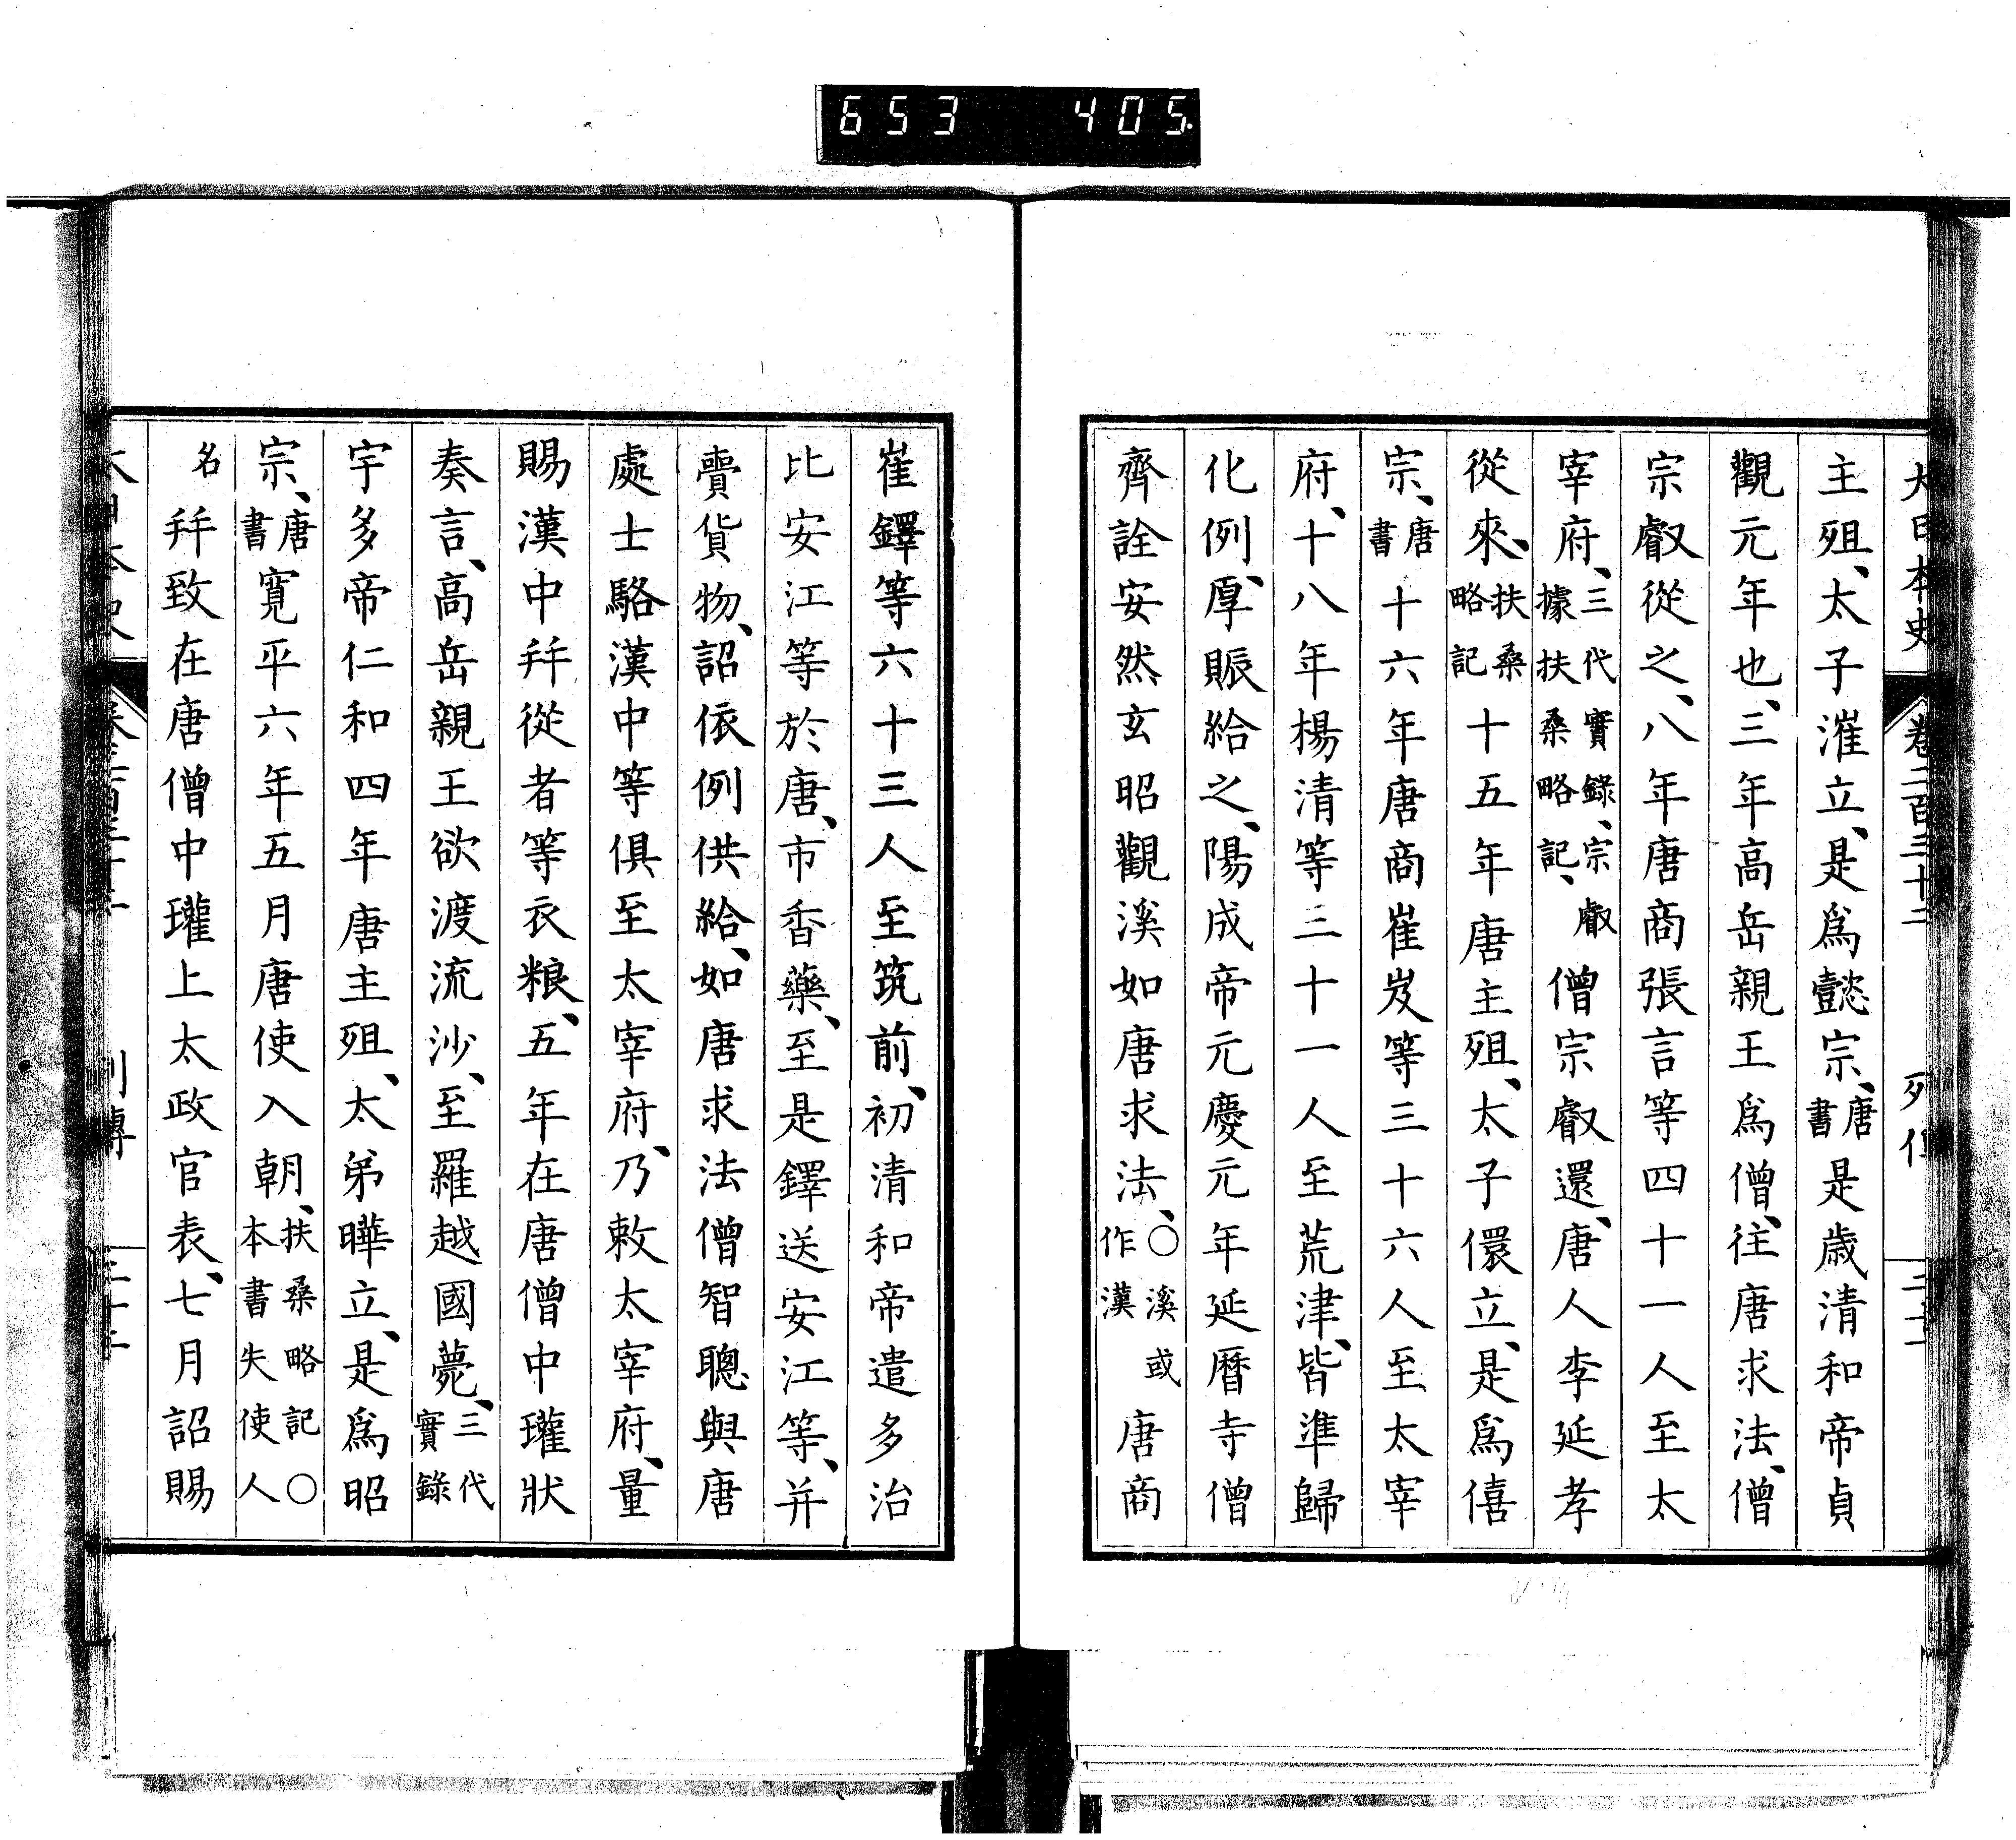 653 405
大日本史 卷二百三十二 列傳
主殂、太子漼立、是爲懿宗、唐書是歲清和帝貞
觀元年也、三年高岳親王爲僧、往唐求法、僧
宗叡從之、八年唐商張言等四十一人至太
宰府、三代實錄、宗叡據扶桑略記、僧宗叡還、唐人李延孝
從來、扶桑略記十五年唐主殂、太子儇立、是爲僖
宗、唐書十六年唐商崔岌等三十六人至太宰
府、十八年楊清等三十一人至荒津、皆準歸
化例、厚賑給之、陽成帝元慶元年延曆寺僧
齊詮安然玄昭觀溪如唐求法、○溪或作漢唐商
崔鐸等六十三人至筑前、初清和帝遣多治
比安江等於唐、市香藥、至是鐸送安江等、并
賣貨物、詔依例供給、如唐求法僧智聰與唐
處士駱漢中等俱至太宰府、乃敕太宰府、量
賜漢中幷從者等衣粮、五年在唐僧中瓘狀
奏言、高岳親王欲渡流沙、至羅越國薨、三代實錄
宇多帝仁和四年唐主殂、太弟曄立、是爲昭
宗、唐書寬平六年五月唐使入朝、扶桑略記○本書失使人
名幷致在唐僧中瓘上太政官表、七月詔賜